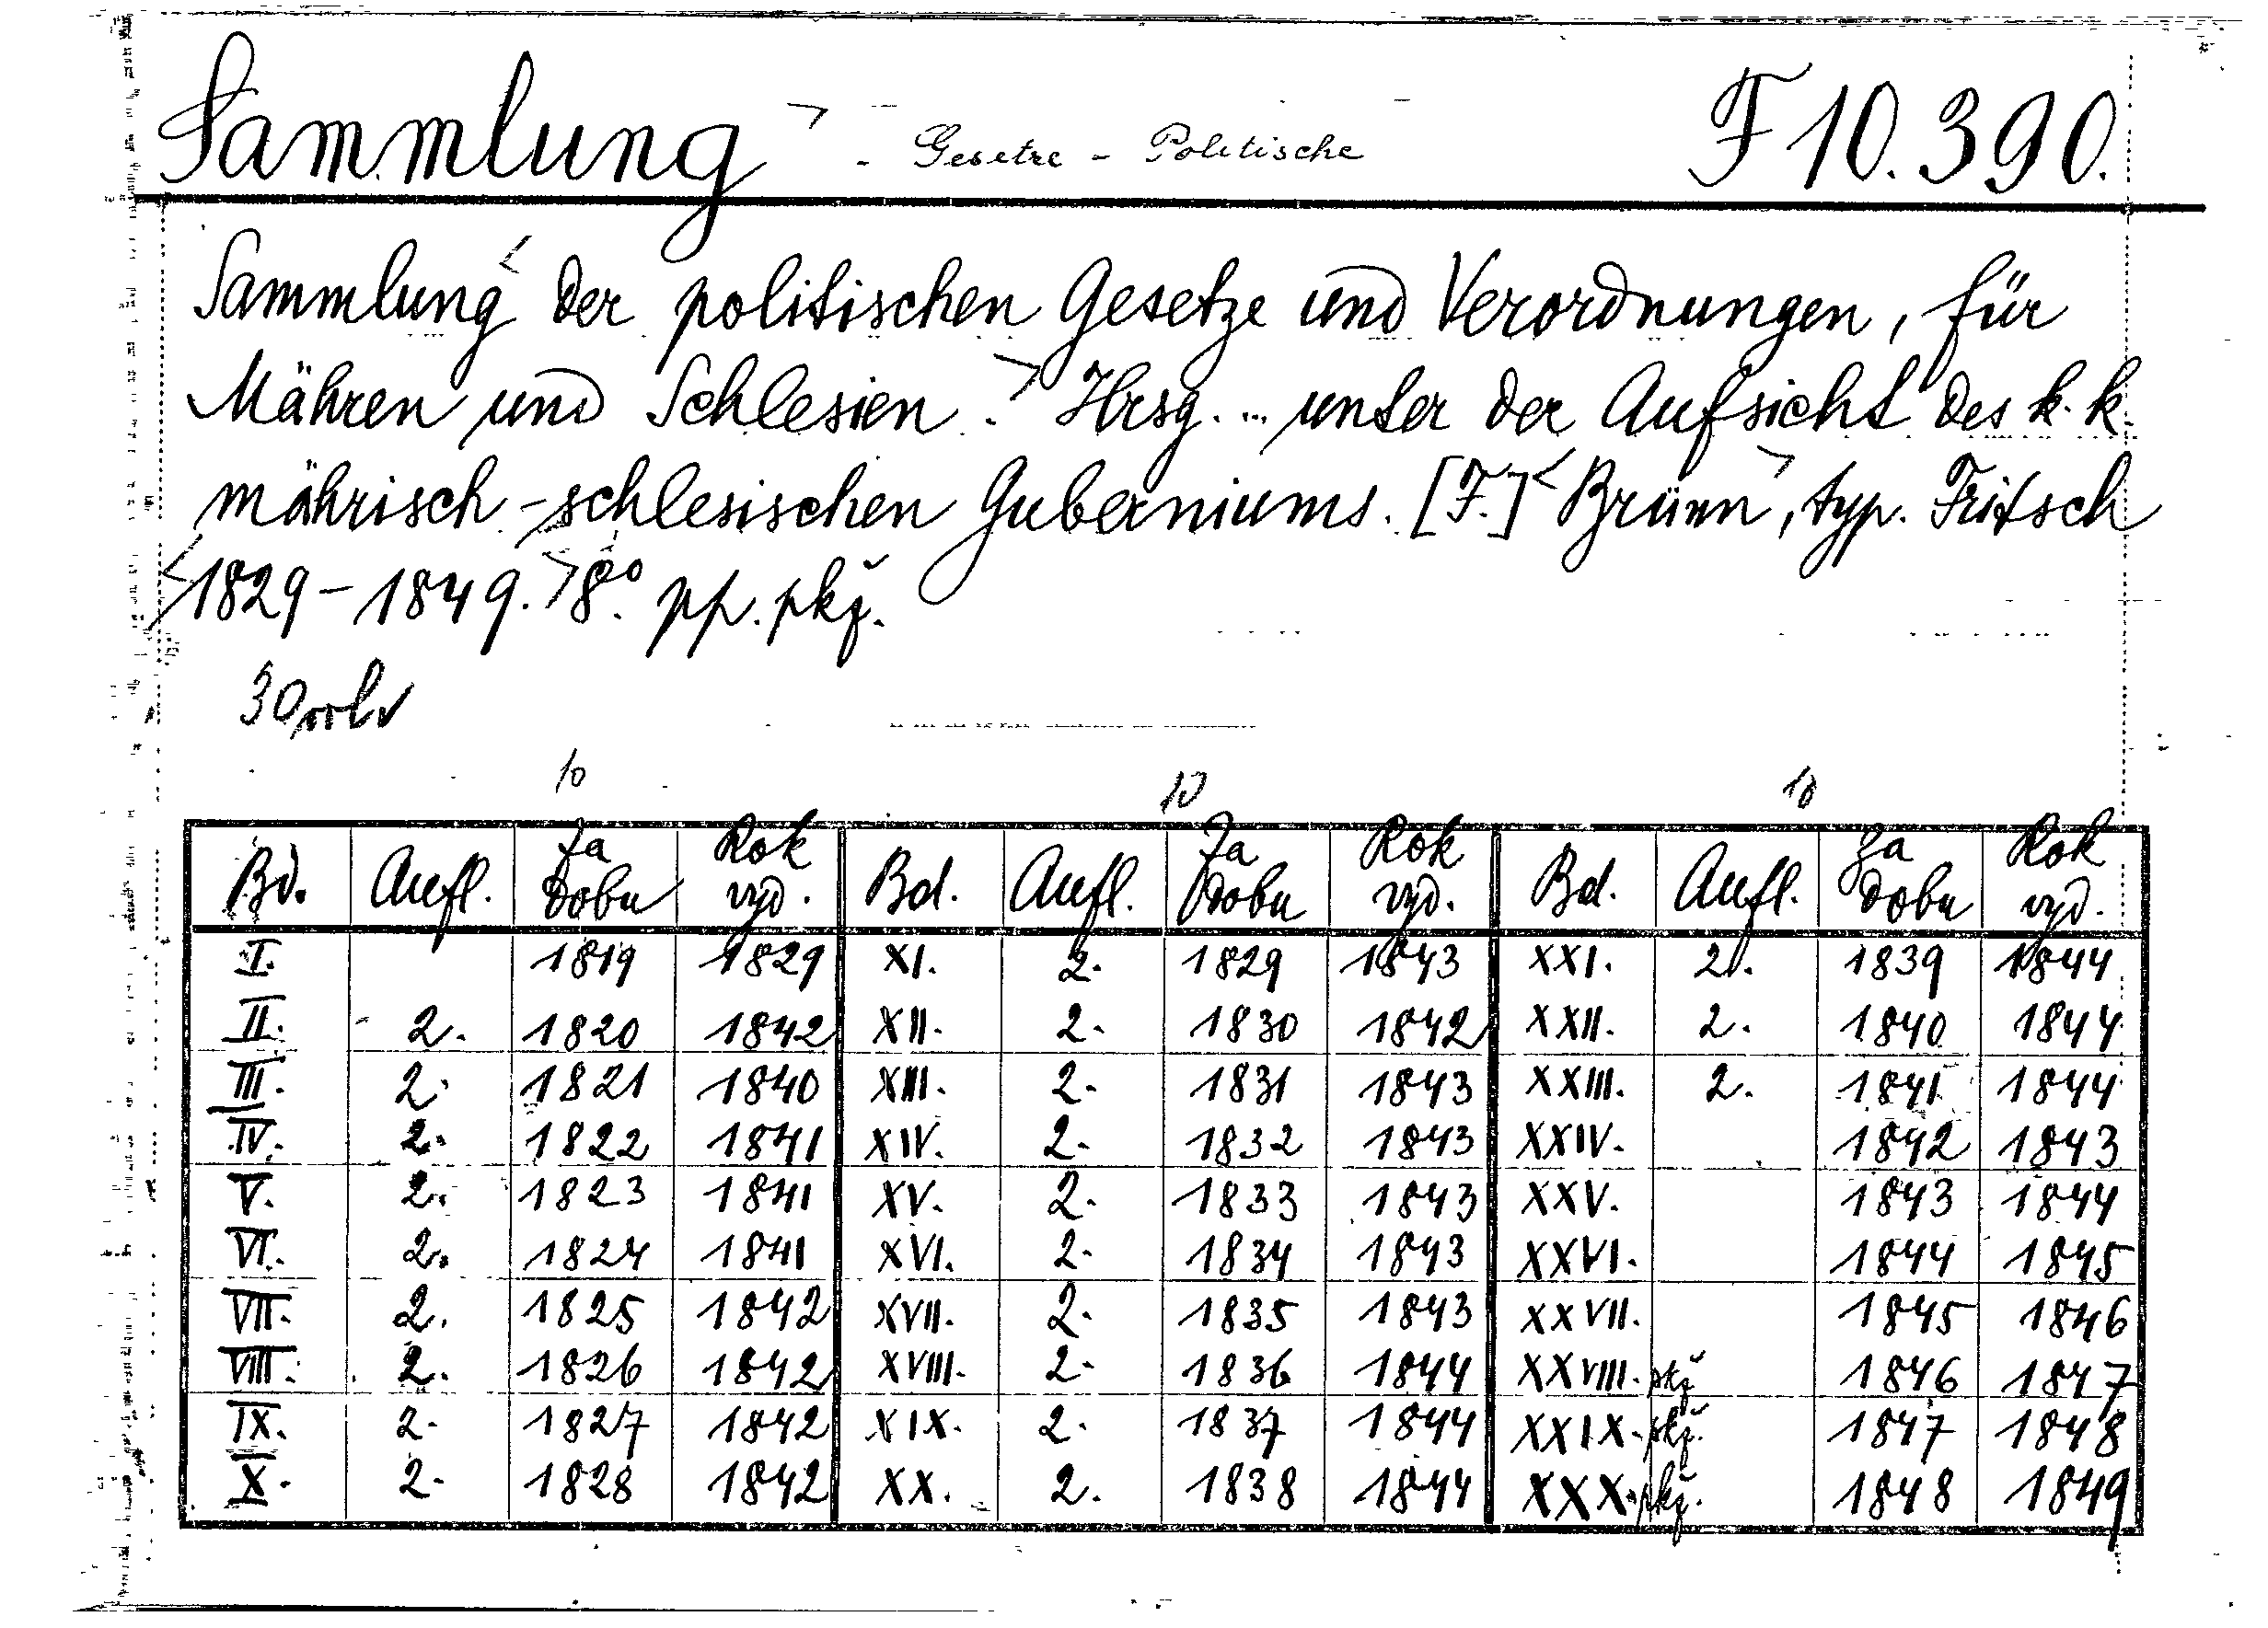 Sammlung - Gesetze - Politische F 10.390.
Sammlung der politischen Gesetze und Verordnungen, für
Mähren und Schlesien. Hrsg. ... unter der Aufsicht des k. k.
mährisch-schlesischen Guberniums. [F.] Brünn, typ. Fritsch
1829-1849. 8º. pp. pkž.
30
10 10 10
Bd. Aufl. Za dobu Rok vyd. Bd. Aufl. Za dobu Rok vyd. Bd. Aufl. Za dobu Rok vyd.
I. 1819 1829 XI. 2. 1829 1843 XXI. 2. 1839 1844
II. 2. 1820 1842 XII. 2. 1830 1842 XXII. 2. 1840 1844
III. 2. 1821 1840 XIII. 2. 1831 1843 XXIII. 2. 1841 1844
IV. 2. 1822 1841 XIV. 2. 1832 1843 XXIV. 1842 1843
V. 2. 1823 1841 XV. 2. 1833 1843 XXV. 1843 1844
VI. 2. 1824 1841 XVI. 2. 1834 1843 XXVI. 1844 1845
VII. 2. 1825 1842 XVII. 2. 1835 1843 XXVII. 1845 1846
VIII. 2. 1826 1842 XVIII. 2. 1836 1844 XXVIII. pkž 1846 1847
IX. 2. 1827 1842 XIX. 2. 1837 1844 XXIX. pkž. 1847 1848
X. 2. 1828 1842 XX. 2. 1838 1844 XXX. pkž. 1848 1849